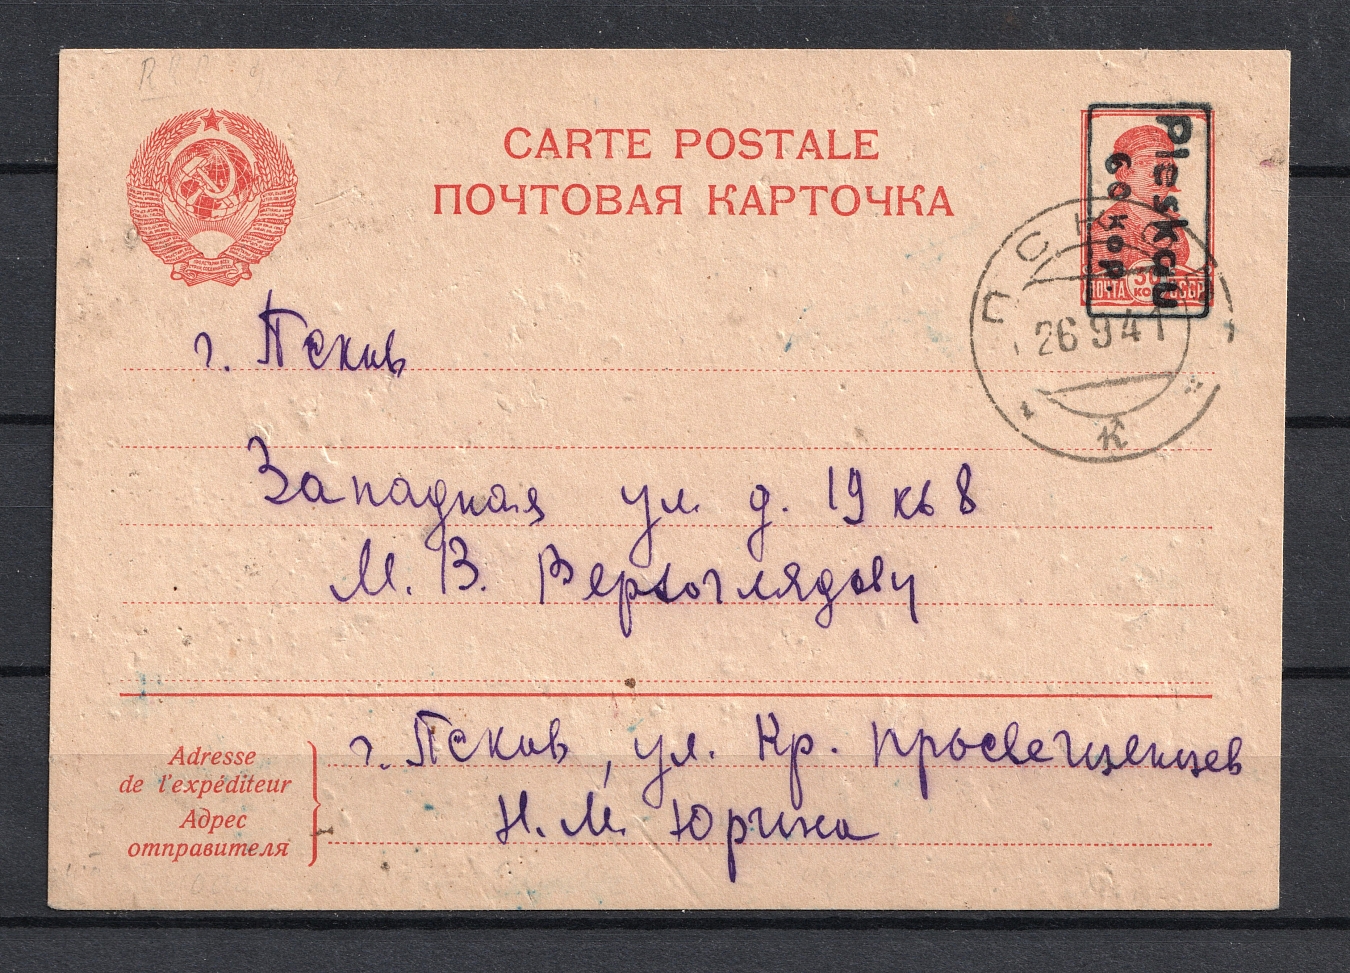 CARTE POSTALE
ПОЧТОВАЯ КАРТОЧКА
Pleskau
60 коп.
30
ПОЧТА КОП СССР
ПСКОВ
26 9 41
К
г. Псков
Западная ул. д. 19 кв 8
М. В. Верхоглядову
Adresse
de l'expéditeur
Адрес
отправителя
г. Псков, ул. Кр. Просвещенцев
Н. М. Юргина